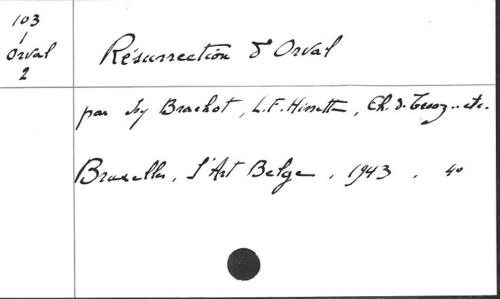 103
Orval
2
Résurrection d'Orval
par Isy Brachot, L.F. Hinsette, Ch. d. ... etc.
Bruxelles, L'Art Belge, 1943. 4°